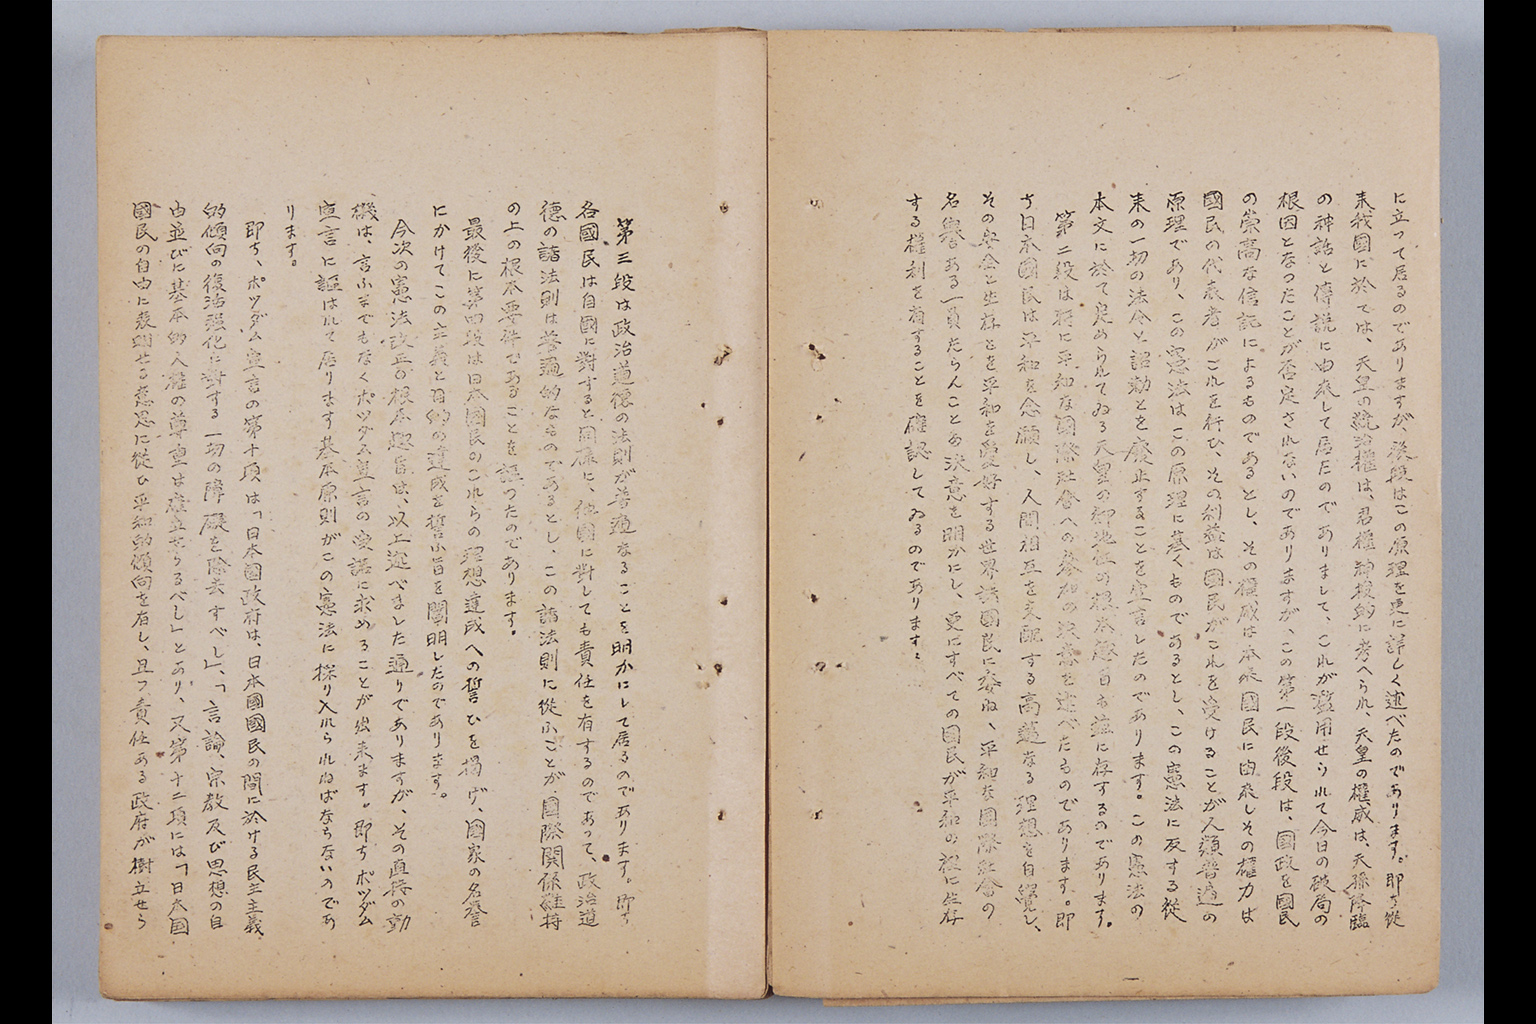 に立つて居るのでありますが、後段はこの原理を更に詳しく述べたのであります。即ち從
来我國に於ては、天皇の統治權は、君權神授的に考へられ、天皇の權威は、天孫降臨
の神話と傳説に由来して居たのでありまして、これが濫用せられて今日の破局の
根因となつたことが否定されないのでありますが、この第一段後段は、國政を國民
の崇高な信託によるものであるとし、その權威は本来國民に由来しその權力は
國民の代表者がこれを行ひ、その利益は國民がこれを受けることが人類普遍の
原理であり、この憲法はこの原理に基くものであるとし、この憲法に反する從
来の一切の法令と詔勅とを廢止することを宣言したのであります。この憲法の
本文に於て定められてゐる天皇の御地位の根本趣旨も茲に存するのであります。
第二段は將に平和な國際社會への参加の決意を述べたものであります。即
ち日本國民は平和を念願し、人間相互を支配する高遠なる理想を自覺し、
その安全と生存とを平和を愛好する世界諸國民に委ね、平和な國際社會の
名譽ある一員たらんことの決意を明かにし、更にすべての國民が平和の裡に生存
する權利を有することを確認してゐるのであります。
第三段は政治道德の法則が普遍なることを明かにして居るのであります。即ち
各國民は自國に對すると同樣に、他國に對しても責任を有するのであつて、政治道
德の諸法則は普遍的なものであるとし、この諸法則に從ふことが國際關係維持
の上の根本要件であることを謳つたのであります。
最後に第四段は日本國民のこれらの理想達成への誓ひを揭げ、國家の名譽
にかけてこの主義と目的の達成を誓ふ旨を闡明したのであります。
今次の憲法改正の根本趣旨は、以上述べました通りでありますが、その直接の動
機は、言ふまでもなくポツダム宣言の受諾に求めることが出来ます。即ちポツダム
宣言に謳はれて居ります基本原則がこの憲法に採り入れられねばならないのであ
ります。
即ち、ポツダム宣言の第十項は「日本國政府は、日本國國民の間に於ける民主主義
的傾向の復活强化に對する一切の障礙を除去すべし」、「言論、宗教及び思想の自
由並びに基本的人權の尊重は確立せらるべし」とあり、又第十二項には「日本國
國民の自由に表明せる意思に從ひ平和的傾向を有し、且つ責任ある政府が樹立せら